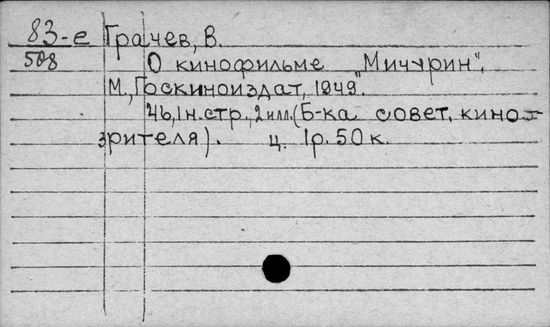 83-е Грачев, В.
508 О кинофильме "Мичурин".
М., Госкиноиздат, 1949.
46, 1 н. стр., 2 илл. (Б-ка совет. кино-
зрителя). ц. 1р. 50 к.